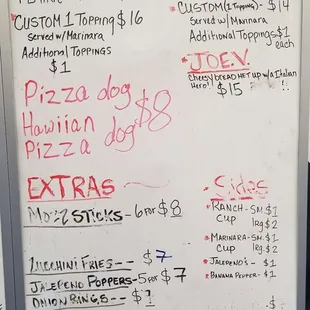 CUSTOM 1 TOPPING $16
Served w/ Marinara
Additional TOPPINGS
$1
CUSTOM (1 Topping) - $14
Served w/ Marinara
Additional Toppings $1
each
JOE V.
Cheesy bread met up w/a Italian
Hero! $15 !!
Pizza dog
Hawiian
Pizza dog $8
EXTRAS
Mozz STICKS - 6 FOR $8
Zucchini FRIES -- $7
JALEPENO POPPERS - 5 FOR $7
ONION RINGS --
Sides
*RANCH - SM. $1
CUP lrg $2
*MARINARA - SM. $1
CUP lrg $2
*JALEPENO'S - $1
*BANANA PEPPER - $1